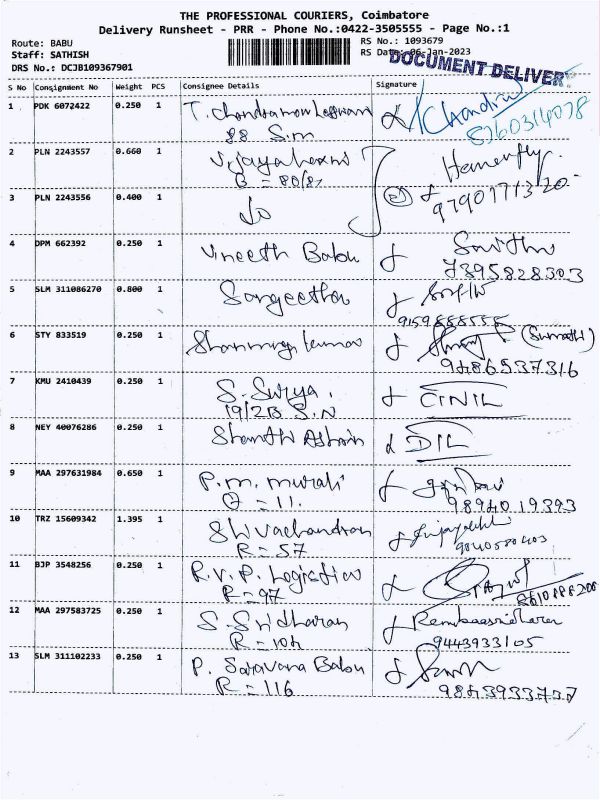 THE PROFESSIONAL COURIERS, Coimbatore
Delivery Runsheet - PRR - Phone No.:0422-3505555 - Page No.:1
Route: BABU
Staff: SATHISH
DRS No.: DCJB109367901
RS No.: 1093679
RS Date: 06-Jan-2023
DOCUMENT DELIVER
S No Consignment No Weight PCS Consignee Details Signature
1 PDK 6072422 0.250 1
88 S.m
2 PLN 2243557 0.660 1
B = 80/8
3 PLN 2243556 0.400 1
9790171320
4 DPM 662392 0.250 1 Vineeth Babu
7395828303
5 SLM 311086270 0.800 1 Sangeetha
9159888555
6 STY 833519 0.250 1 Shanmuga kumar (Sumathi)
9486537316
7 KMU 2410439 0.250 1 S. Surya. CINIL
19/2B S.N
8 NEY 40076286 0.250 1 Shanthi DIL
9 MAA 297631984 0.650 1 P.m. murali
= 11. 9894019393
10 TRZ 15609342 1.395 1 Shivachandran
R = 57 9040580403
11 BJP 3548256 0.250 1 R.V.P. Logistics
R = 97
12 MAA 297583725 0.250 1 S. Sridharan
R = 104 9443933105
13 SLM 311102233 0.250 1 P. Saravana Babu
R = 116 9843933737